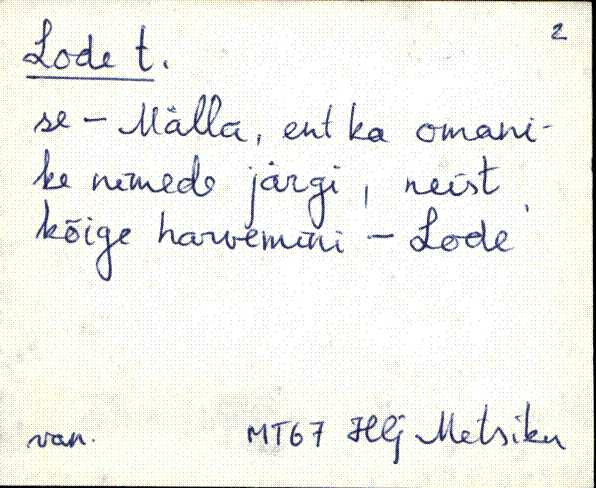 2
Lode t.
se – Mälla, ent ka omani-
ke nimede järgi, neist
kõige harvemini – Lode
van. MT67 HLj Metsiku